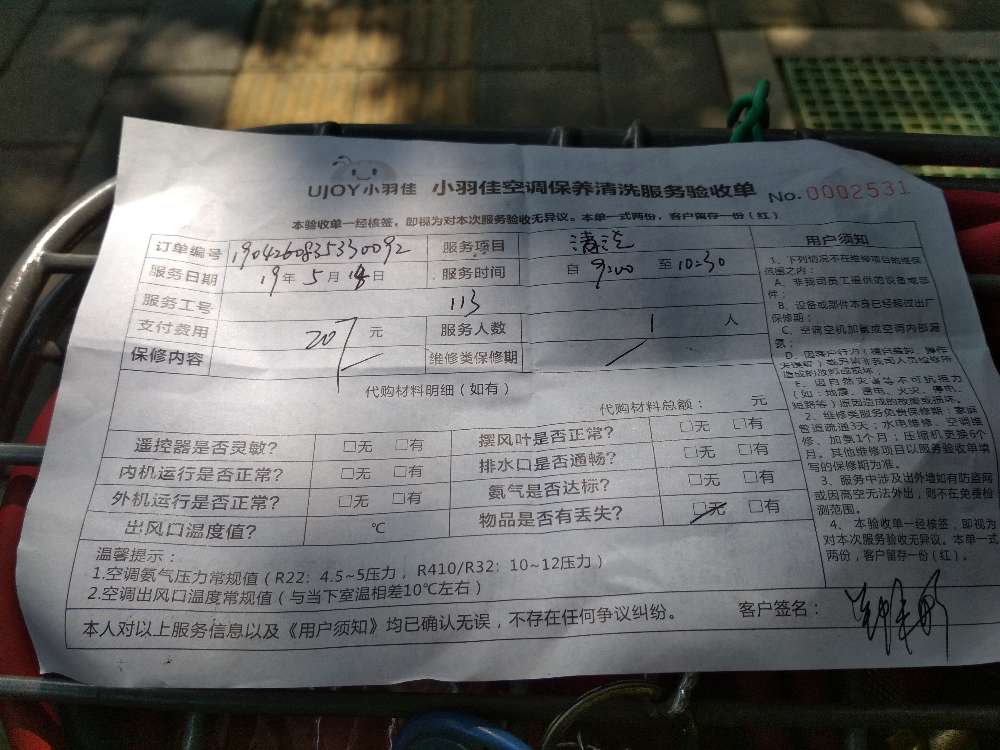 UJOY小羽佳 小羽佳空调保养清洗服务验收单 No.0002531
本验收单一经核签，即视为对本次服务验收无异议。本单一式两份，客户留存一份（红）
订单编号 1904260835330092 服务项目 清洗
服务日期 19年5月18日 服务时间 自 9:00 至 10:30
服务工号 113
支付费用 207 元 服务人数 1 人
保修内容 维修类保修期
代购材料明细（如有）
代购材料总额： 元
遥控器是否灵敏？ □无 □有 摆风叶是否正常？ □无 □有
内机运行是否正常？ □无 □有 排水口是否通畅？ □无 □有
外机运行是否正常？ □无 □有 氨气是否达标？ □无 □有
出风口温度值？ ℃ 物品是否有丢失？ □无 □有
温馨提示：
1.空调氨气压力常规值（R22：4.5~5压力，R410/R32：10~12压力）
2.空调出风口温度常规值（与当下室温相差10℃左右）
本人对以上服务信息以及《用户须知》均已确认无误，不存在任何争议纠纷。
客户签名：
用户须知
1、下列情况不在维修项目的维保
范围之内：
A、非我司员工提供的设备或部
件；
B、设备或部件本身已经超过出厂
保修期；
C、空调空机加氨或空调内部漏
氨；
E、因自然灾害等不可抗拒力
（如：地震、雷电、火灾、停电、
短路等）原因造成的故障或损坏。
2、维修类服务免费保修期：家庭
管道疏通3天；水电维修、空调维
修、加氨1个月；压缩机更换6个
月。其他维修项目以服务验收单填
写的保修期为准。
3、服务中涉及出外墙如有防盗网
或因高空无法外出，则不在免费检
测范围。
4、本验收单一经核签，即视为
对本次服务验收无异议。本单一式
两份，客户留存一份（红）。